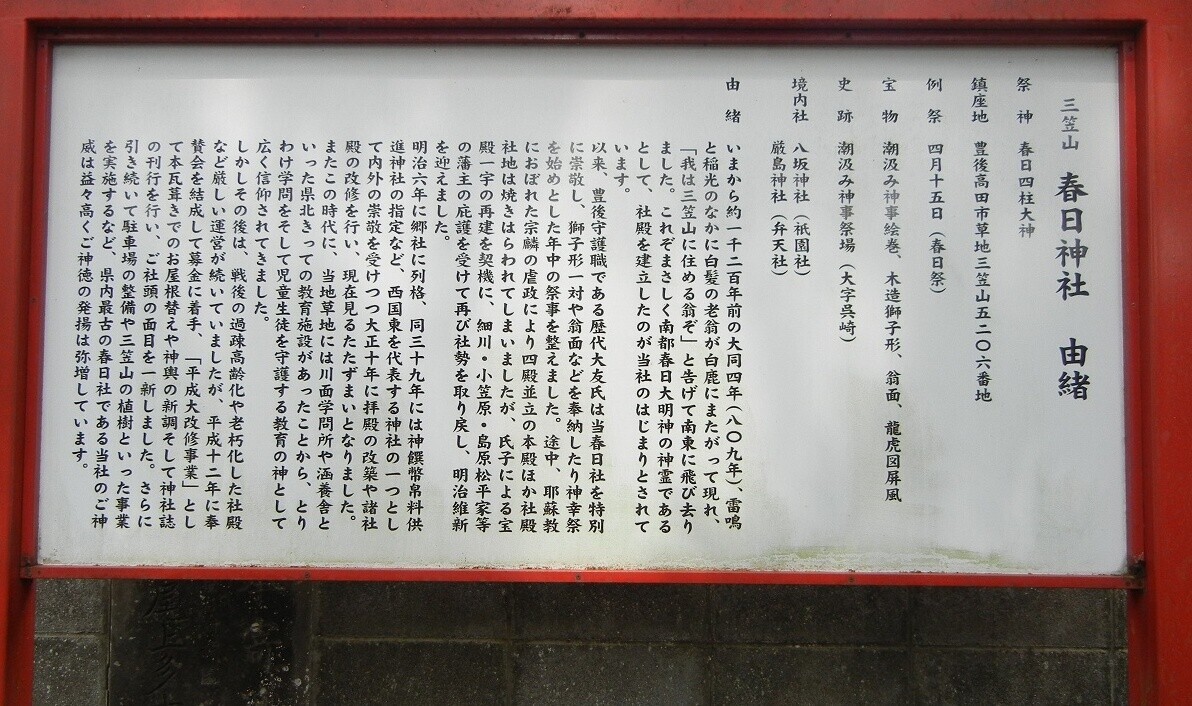 三笠山 春日神社 由緒
祭神 春日四柱大神
鎮座地 豊後高田市草地三笠山五二〇六番地
例祭 四月十五日（春日祭）
宝物 潮汲み神事絵巻、木造獅子形、翁面、龍虎図屏風
史跡 潮汲み神事祭場（大字呉崎）
境内社 八坂神社（祇園社）
厳島神社（弁天社）
由緒 いまから約一千二百年前の大同四年（八〇九年）、雷鳴
と稲光のなかに白髪の老翁が白鹿にまたがって現れ、
「我は三笠山に住める翁ぞ」と告げて南東に飛び去り
ました。これぞまさしく南都春日大明神の神霊である
として、社殿を建立したのが当社のはじまりとされて
います。
以来、豊後守護職である歴代大友氏は当春日社を特別
に崇敬し、獅子形一対や翁面などを奉納したり神幸祭
を始めとした年中の祭事を整えました。途中、耶蘇教
におぼれた宗麟の虐政により四殿並立の本殿ほか社殿
社地は焼きはらわれてしまいましたが、氏子による宝
殿一宇の再建を契機に、細川・小笠原・島原松平家等
の藩主の庇護を受けて再び社勢を取り戻し、明治維新
を迎えました。
明治六年に郷社に列格、同三十九年には神饌幣帛料供
進神社の指定など、西国東を代表する神社の一つとし
て内外の崇敬を受けつつ大正十年に拝殿の改築や諸社
殿の改修を行い、現在見るたたずまいとなりました。
またこの時代に、当地草地には川面学問所や涵養舎と
いった県北きっての教育施設があったことから、とり
わけ学問をそして児童生徒を守護する教育の神として
広く信仰されてきました。
しかしその後は、戦後の過疎高齢化や老朽化した社殿
など厳しい運営が続いていましたが、平成十二年に奉
賛会を結成して募金に着手、「平成大改修事業」とし
て本瓦葺きでのお屋根替えや神輿の新調そして神社誌
の刊行を行い、ご社頭の面目を一新しました。さらに
引き続いて駐車場の整備や三笠山の植樹といった事業
を実施するなど、県内最古の春日社である当社のご神
威は益々高くご神徳の発揚は弥増しています。